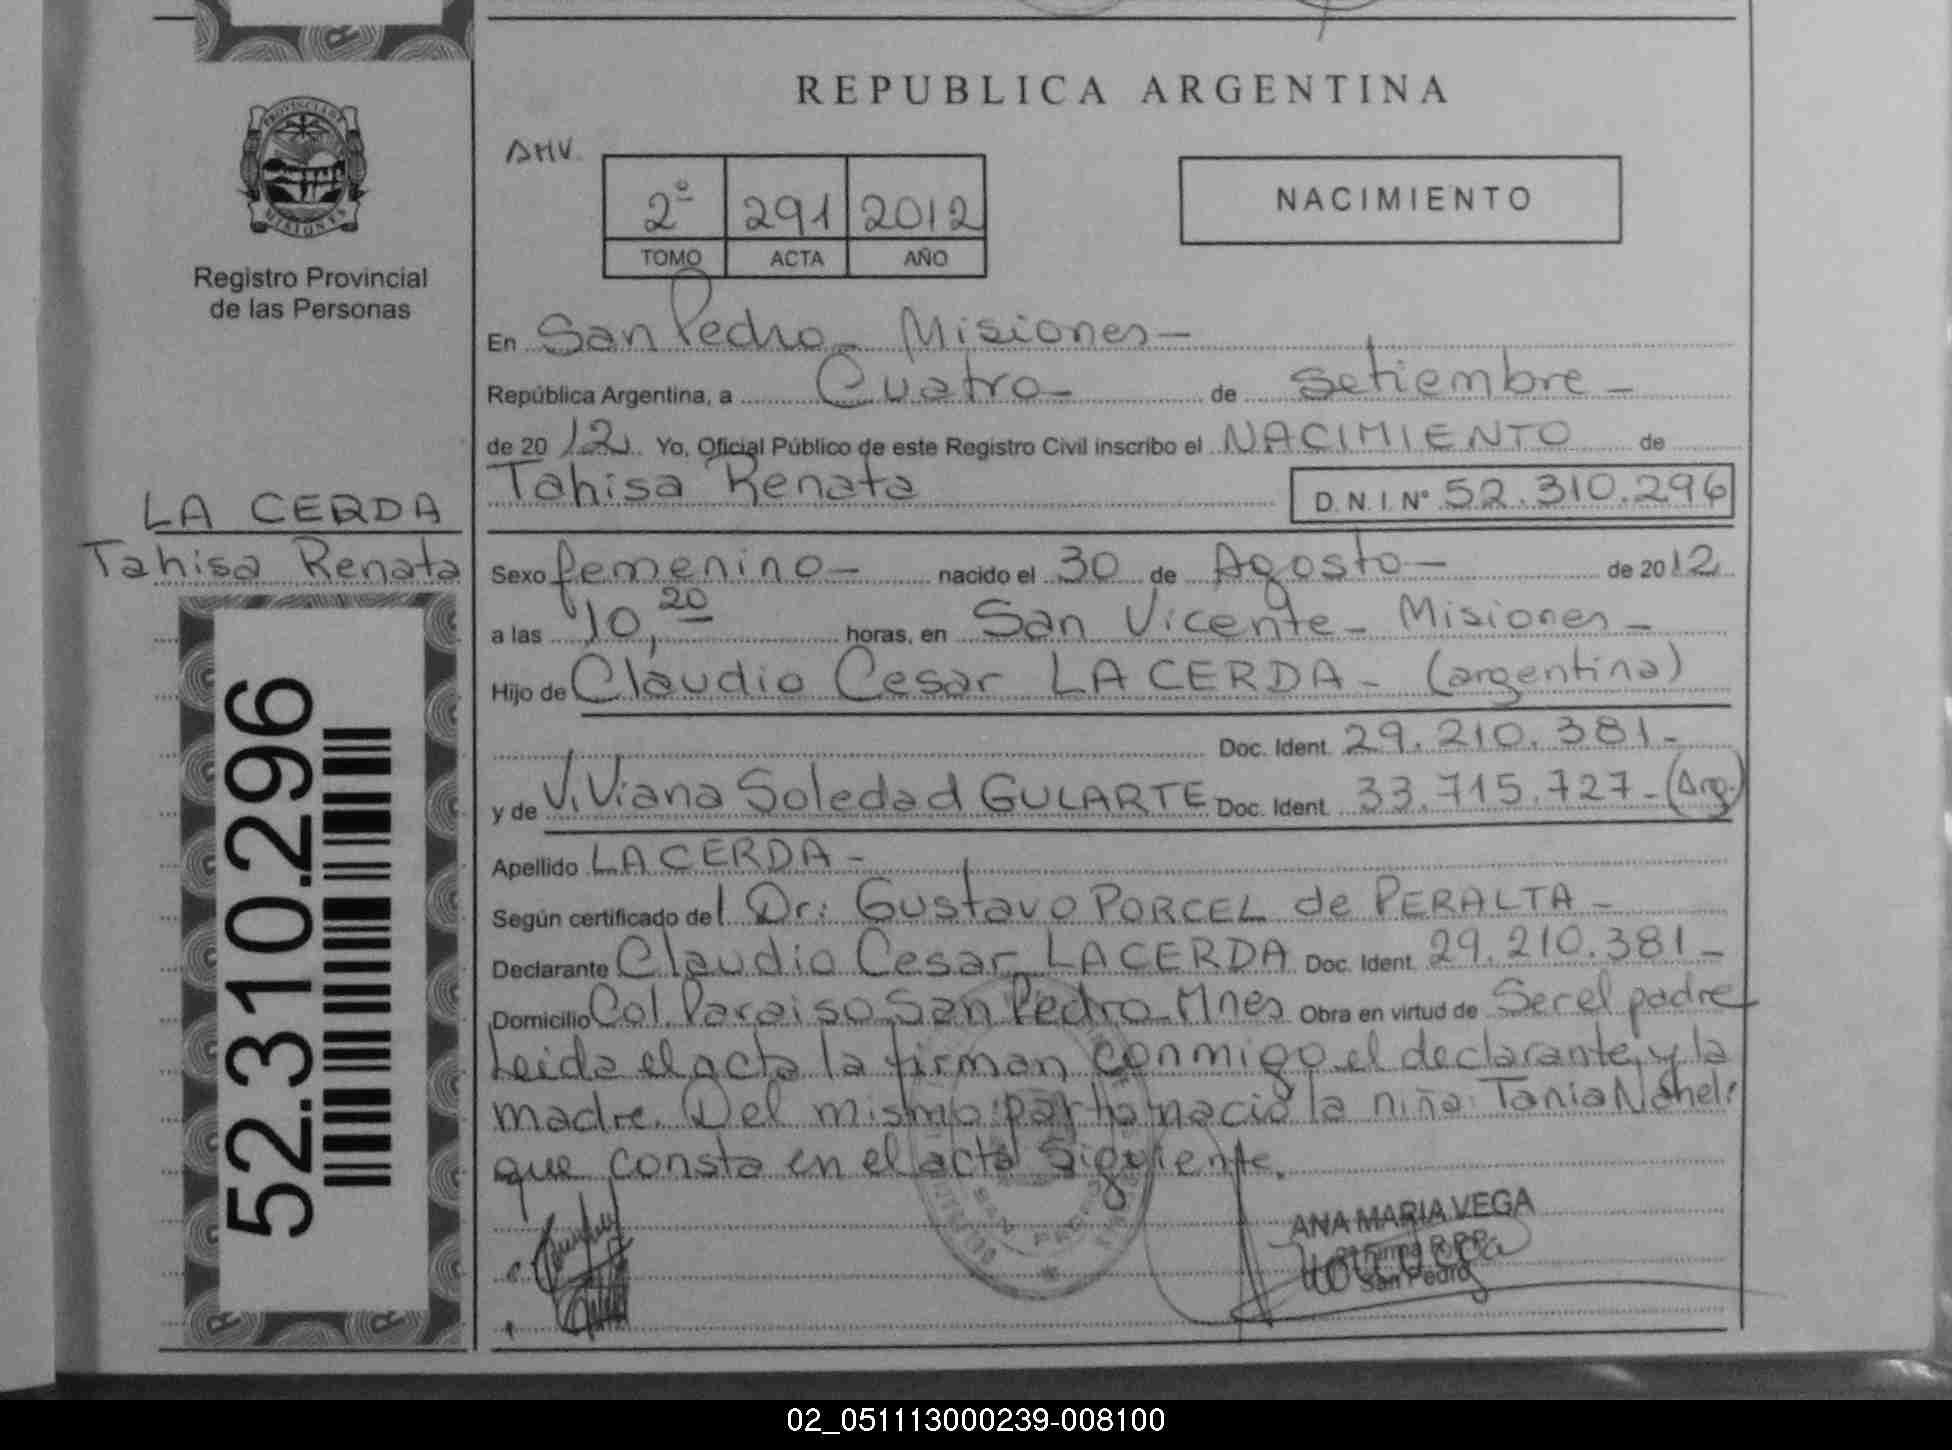 REPUBLICA ARGENTINA
AMV.
2º 291 2012
TOMO ACTA AÑO
NACIMIENTO
PROVINCIA DE MISIONES
Registro Provincial
de las Personas
En San Pedro - Misiones -
República Argentina, a Cuatro - de Setiembre -
de 2012. Yo, Oficial Público de este Registro Civil inscribo el NACIMIENTO de
Tahisa Renata
D.N.I. Nº 52.310.296
LA CERDA
Tahisa Renata
52.310.296
Sexo femenino - nacido el 30 de Agosto - de 2012
a las 10,20 horas, en San Vicente - Misiones -
Hijo de Claudio Cesar LA CERDA - (argentina)
Doc. Ident. 29.210.381 -
y de Viviana Soledad GULARTE Doc. Ident. 33.715.727 - (Arg.)
Apellido LA CERDA -
Según certificado del Dr: Gustavo PORCEL de PERALTA -
Declarante Claudio Cesar LA CERDA Doc. Ident. 29.210.381 -
Domicilio Col. Paraiso San Pedro - Mnes Obra en virtud de Ser el padre
Leida el acta la firman conmigo el declarante y la
madre. Del mismo parto nacio la niña: Tania Naheli
que consta en el acta siguiente.
ANA MARIA VEGA
San Pedro
02_051113000239-008100